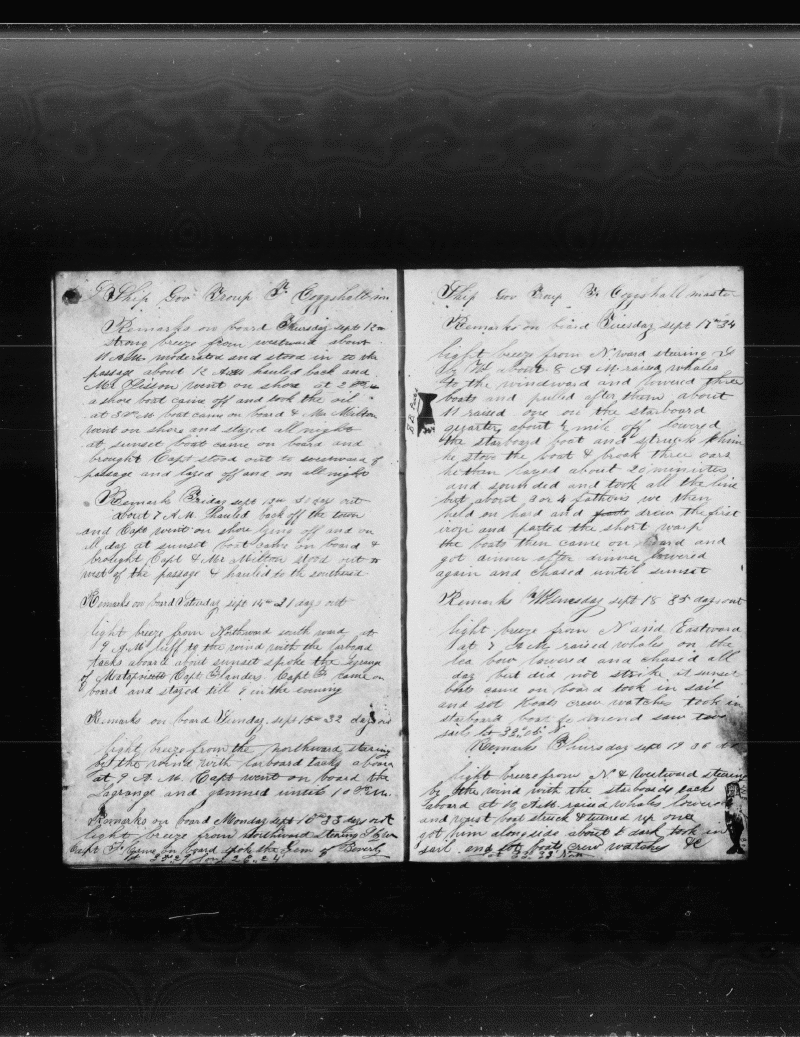 Ship Gov Troup F. Coggshall m
Remarks on board Thursday sept 12th
strong breeze from westward about
11 AM moderated and stood in to the
passage about 12 hauled back and
Mr Sisson went on shore at 2 PM
a shore boat came off and took the oil
at 3 PM boat came on board & Mr Milton
went on shore and stayed all night
at sunset boat came on board and
brought Capt stood out to westward of
passage and layed off and on all night
Remarks Friday sept 13th days out
about 7 A.M. hauled back off the town
and Capt went on shore lying off and on
all day at sunset boat came on board &
brought Capt & Mr Milton stood out to
west of the passage & hauled to the southward
Remarks on board Saturday sept 14th 31 days out
light breeze from Northward south ward at
9 A.M. luff to the wind with the larboard
tacks aboard about sunset spoke the
of Matapoisett Capt Flanders. Capt F. came on
board and stayed till 9 in the evening
Remarks on board Sunday sept 15th 32 days out
light breeze from the northward stearing
by the wind with larboard tacks aboard
at 9 A.M. Capt went on board the
Lagrange and gammed until 10 P.M.
Remarks on board Monday sept 16th 33 days out
light breeze from northward stearing
Capt F. came on board spoke the Gem of Beverly
Ship Gov Troup F. Coggshall master
Remarks on board Tuesday sept 17th 34
light breeze from N ward stearing
by about 8 A M raised whales
to the windward and lowered three
boats and pulled after them about
11 raised one on the starboard
quarter about ½ mile off lowered
the starboard boat and struck him
he stove the boat & broak three oars
he then layed about 20 minuutes
and sounded and took all the line
but about 3 or 4 fathoms we then
held on hard and drew the first
iron and parted the short warp
the boats then came on board and
got dinner after dinner lowered
again and chased until sunset
Remarks Wensday sept 18 35 days out
light breeze from N and Eastward
at 7 raised whales on the
lea bow lowered and chased all
day but did not strike at sunset
boats came on board took in sail
and sot boats crew watches took in
starboard boat to mend saw two
sails
Remarks Thursday sept 19 36
light breeze from N & westward stearing
by the wind with the starboard tacks
aboard at 10 A.M. raised whales lowered
and waist boat struck & turned up one
got him alongside about took in
sail and sot boats crew watches &c